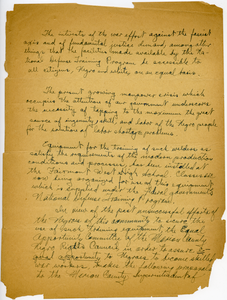 The interests of the war effort against the fascist
axis and of fundamental justice demand, among other
things that the facilities made available by the Na-
tional Defense Training Program be accessible to
all citizens, Negro and white, on an equal basis
The present growing manpower crisis which
occupies the attention of our government underscores
the necessity of tapping to the maximum the great
sources of ingenuity, skill, and labor of the Negro people
for the solution of labor shortage problems.
Equipment for the training of such welders as
satisfy the requirements of the modern production
conditions and processes has been installed at
the Fairmont West High School. Classes are
now being arranged for use of this equipment
which is supplied under the Federal Government's
National Defense Training Program.
In view of the past unsuccessful efforts of
the Negroes of this community to secure the
use of such training equipment, the Equal
Opportunity Committee of the Marion County
Negro Rights Council in order to assure
equal opportunity to Negroes to become skilled
war workers, makes the following proposals
to the Marion County Superintendent